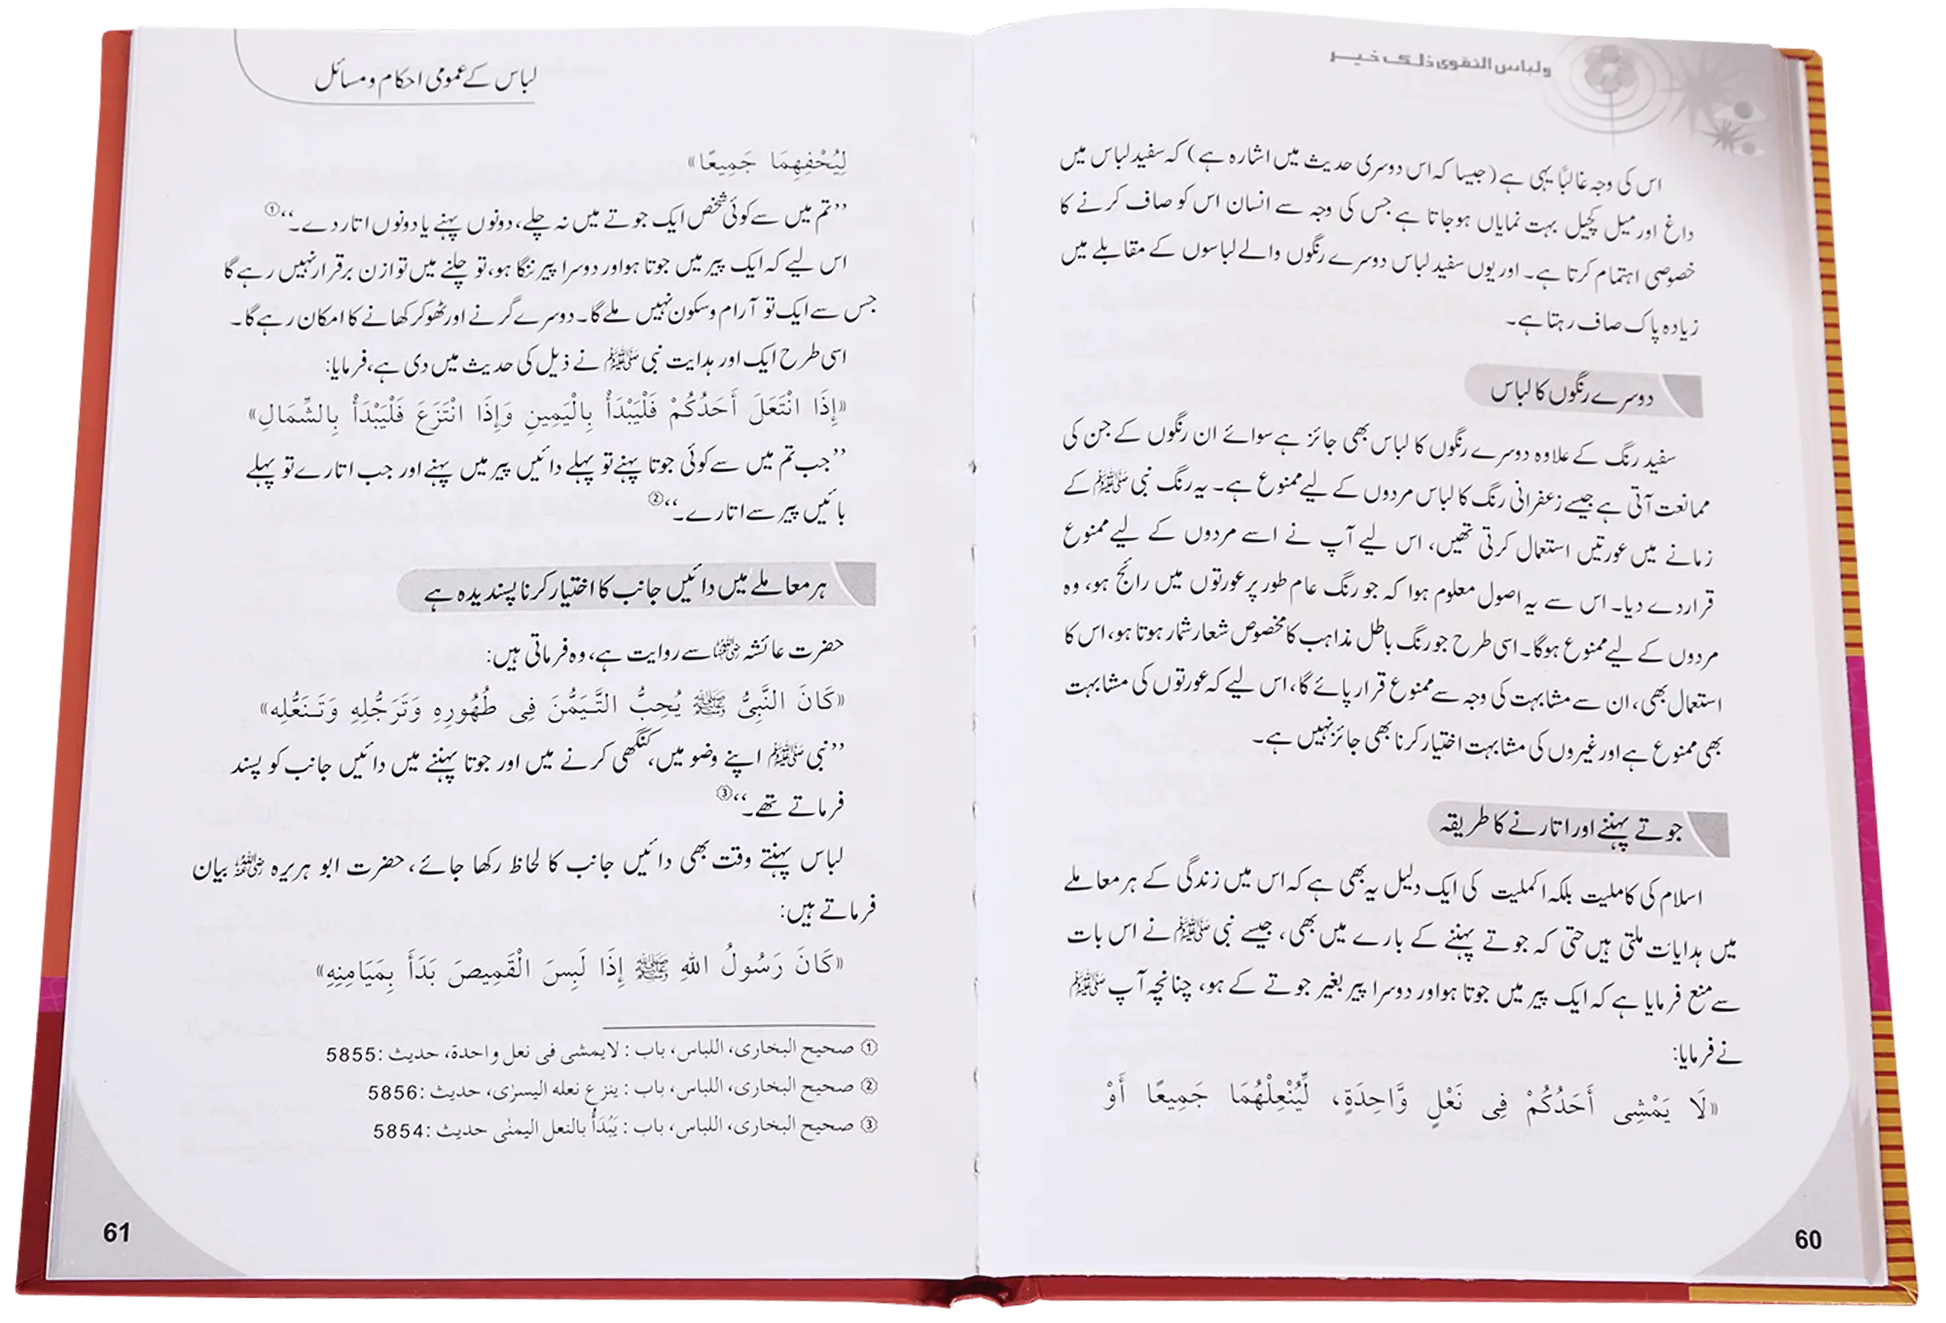 ولباس التقوی ذلک خیر
اس کی وجہ غالبًا یہی ہے (جیسا کہ اس دوسری حدیث میں اشارہ ہے) کہ سفید لباس میں
داغ اور میل کچیل بہت نمایاں ہوجاتا ہے جس کی وجہ سے انسان اس کو صاف کرنے کا
خصوصی اہتمام کرتا ہے۔ اور یوں سفید لباس دوسرے رنگوں والے لباسوں کے مقابلے میں
زیادہ پاک صاف رہتا ہے۔
دوسرے رنگوں کا لباس
سفید رنگ کے علاوہ دوسرے رنگوں کا لباس بھی جائز ہے سوائے ان رنگوں کے جن کی
ممانعت آتی ہے جیسے زعفرانی رنگ کا لباس مردوں کے لیے ممنوع ہے۔ یہ رنگ نبی ﷺ کے
زمانے میں عورتیں استعمال کرتی تھیں، اس لیے آپ نے اسے مردوں کے لیے ممنوع
قرار دے دیا۔ اس سے یہ اصول معلوم ہوا کہ جو رنگ عام طور پر عورتوں میں رائج ہو، وہ
مردوں کے لیے ممنوع ہوگا۔ اسی طرح جو رنگ باطل مذاہب کا مخصوص شعار شمار ہوتا ہو، اس کا
استعمال بھی، ان سے مشابہت کی وجہ سے ممنوع قرار پائے گا، اس لیے کہ عورتوں کی مشابہت
بھی ممنوع ہے اور غیروں کی مشابہت اختیار کرنا بھی جائز نہیں ہے۔
جوتے پہننے اور اتارنے کا طریقہ
اسلام کی کاملیت بلکہ اکملیت کی ایک دلیل یہ بھی ہے کہ اس میں زندگی کے ہر معاملے
میں ہدایات ملتی ہیں حتی کہ جوتے پہننے کے بارے میں بھی، جیسے نبی ﷺ نے اس بات
سے منع فرمایا ہے کہ ایک پیر میں جوتا ہو اور دوسرا پیر بغیر جوتے کے ہو، چنانچہ آپ ﷺ
نے فرمایا:
«لَا يَمْشِى أَحَدُكُمْ فِى نَعْلٍ وَّاحِدَةٍ، لِّيُنْعِلْهُمَا جَمِيعًا أَوْ
60
لباس کے عمومی احکام و مسائل
لِيُحْفِهِمَا جَمِيعًا»
’’تم میں سے کوئی شخص ایک جوتے میں نہ چلے، دونوں پہنے یا دونوں اتار دے۔‘‘①
اس لیے کہ ایک پیر میں جوتا ہو اور دوسرا پیر ننگا ہو، تو چلنے میں توازن برقرار نہیں رہے گا
جس سے ایک تو آرام و سکون نہیں ملے گا۔ دوسرے گرنے اور ٹھوکر کھانے کا امکان رہے گا۔
اسی طرح ایک اور ہدایت نبی ﷺ نے ذیل کی حدیث میں دی ہے، فرمایا:
«إِذَا انْتَعَلَ أَحَدُكُمْ فَلْيَبْدَأْ بِالْيَمِينِ وَإِذَا انْتَزَعَ فَلْيَبْدَأْ بِالشِّمَالِ»
’’جب تم میں سے کوئی جوتا پہنے تو پہلے دائیں پیر میں پہنے اور جب اتارے تو پہلے
بائیں پیر سے اتارے۔‘‘②
ہر معاملے میں دائیں جانب کا اختیار کرنا پسندیدہ ہے
حضرت عائشہ رضی اللہ عنہا سے روایت ہے، وہ فرماتی ہیں:
«كَانَ النَّبِىُّ ﷺ يُحِبُّ التَّيَمُّنَ فِى طُهُورِهِ وَتَرَجُّلِهِ وَتَنَعُّلِه»
’’نبی ﷺ اپنے وضو میں، کنگھی کرنے میں اور جوتا پہننے میں دائیں جانب کو پسند
فرماتے تھے۔‘‘③
لباس پہنتے وقت بھی دائیں جانب کا لحاظ رکھا جائے، حضرت ابو ہریرہ رضی اللہ عنہ بیان
فرماتے ہیں:
«كَانَ رَسُولُ اللهِ ﷺ إِذَا لَبِسَ الْقَمِيصَ بَدَأَ بِمَيَامِنِهِ»
① صحيح البخارى، اللباس، باب : لا يمشى فى نعل واحدة، حديث :5855
② صحيح البخارى، اللباس، باب : ينزع نعله اليسرٰى، حديث :5856
③ صحيح البخارى، اللباس، باب : يَبْدَأُ بالنعل اليمنٰى حديث :5854
61